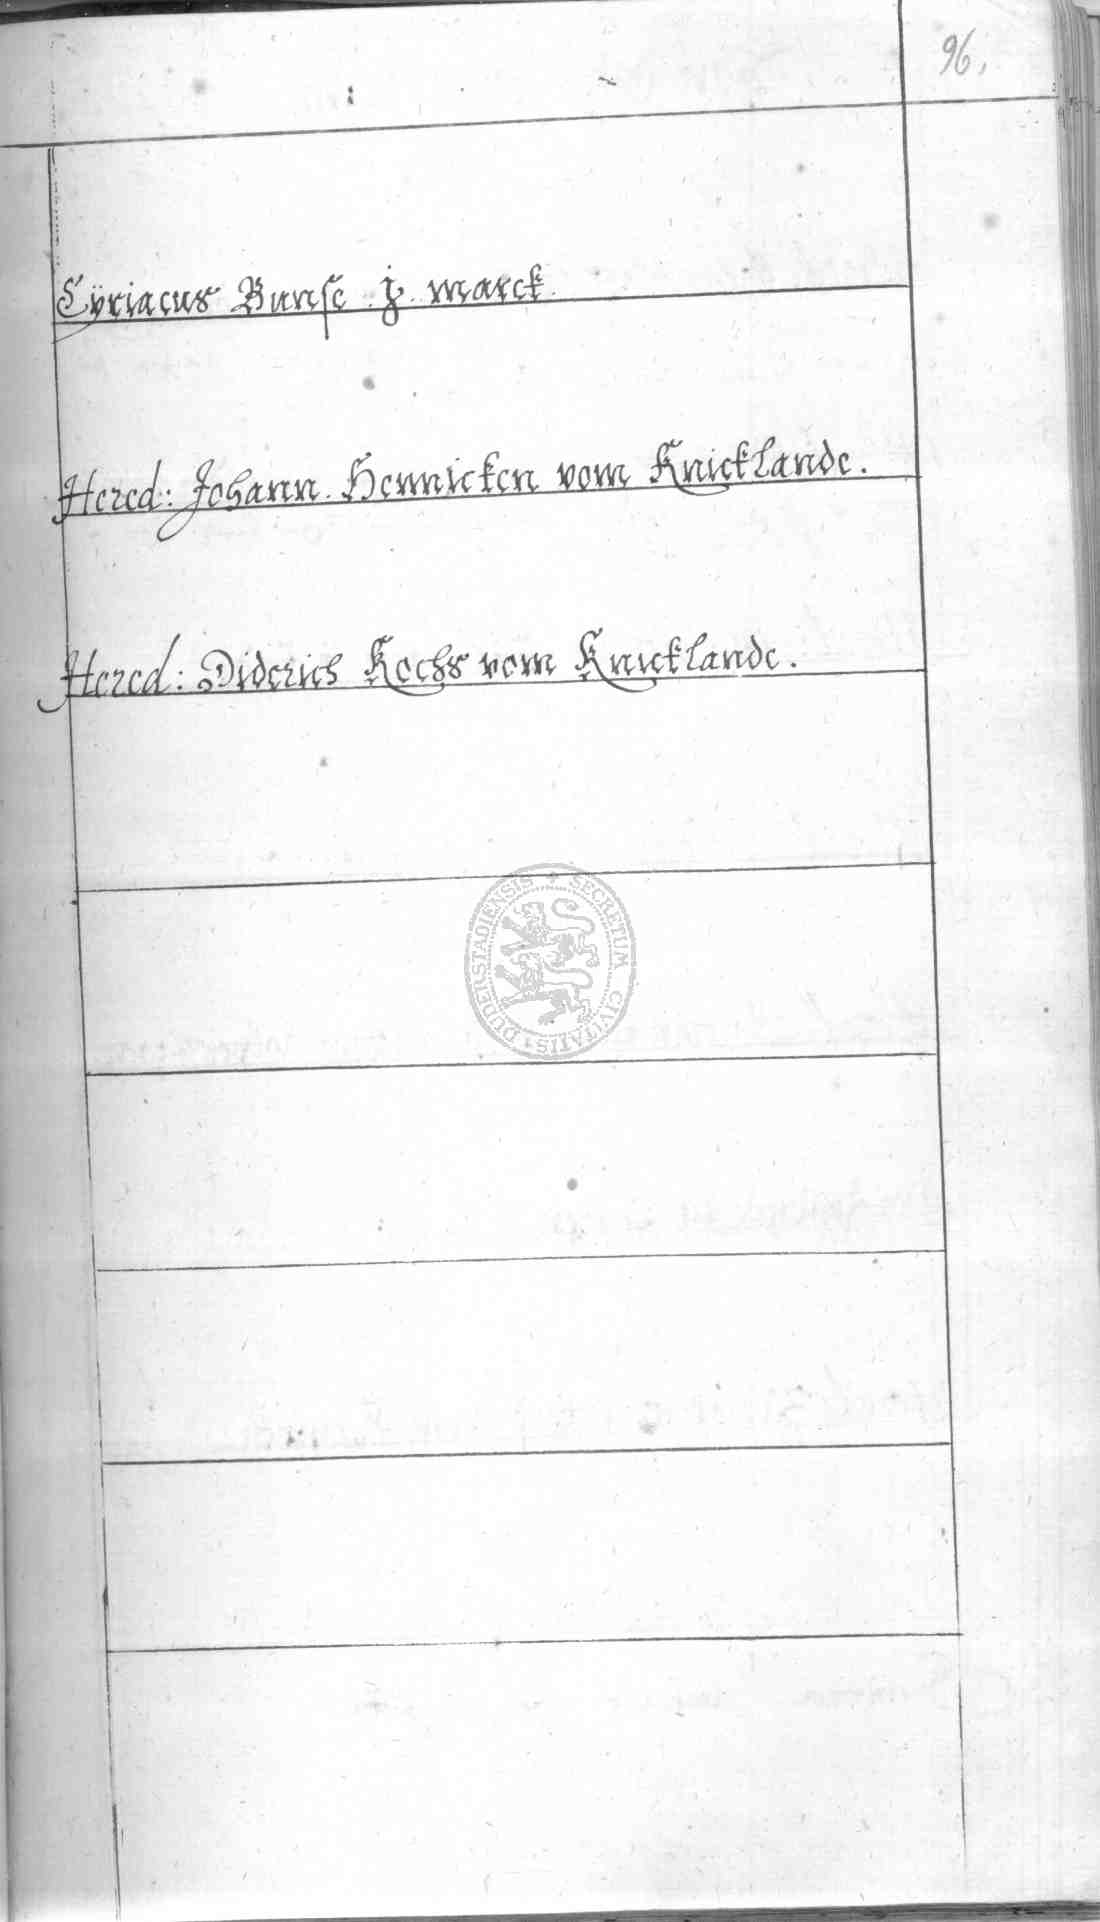 96.
Cÿriacus Bunse j. marck.
Hered: Johann Hennicken vom Knicklande.
Hered: Diderich Kochs vom Knicklande.
SECRETUM CIVITATIS DUDERSTADIENSIS